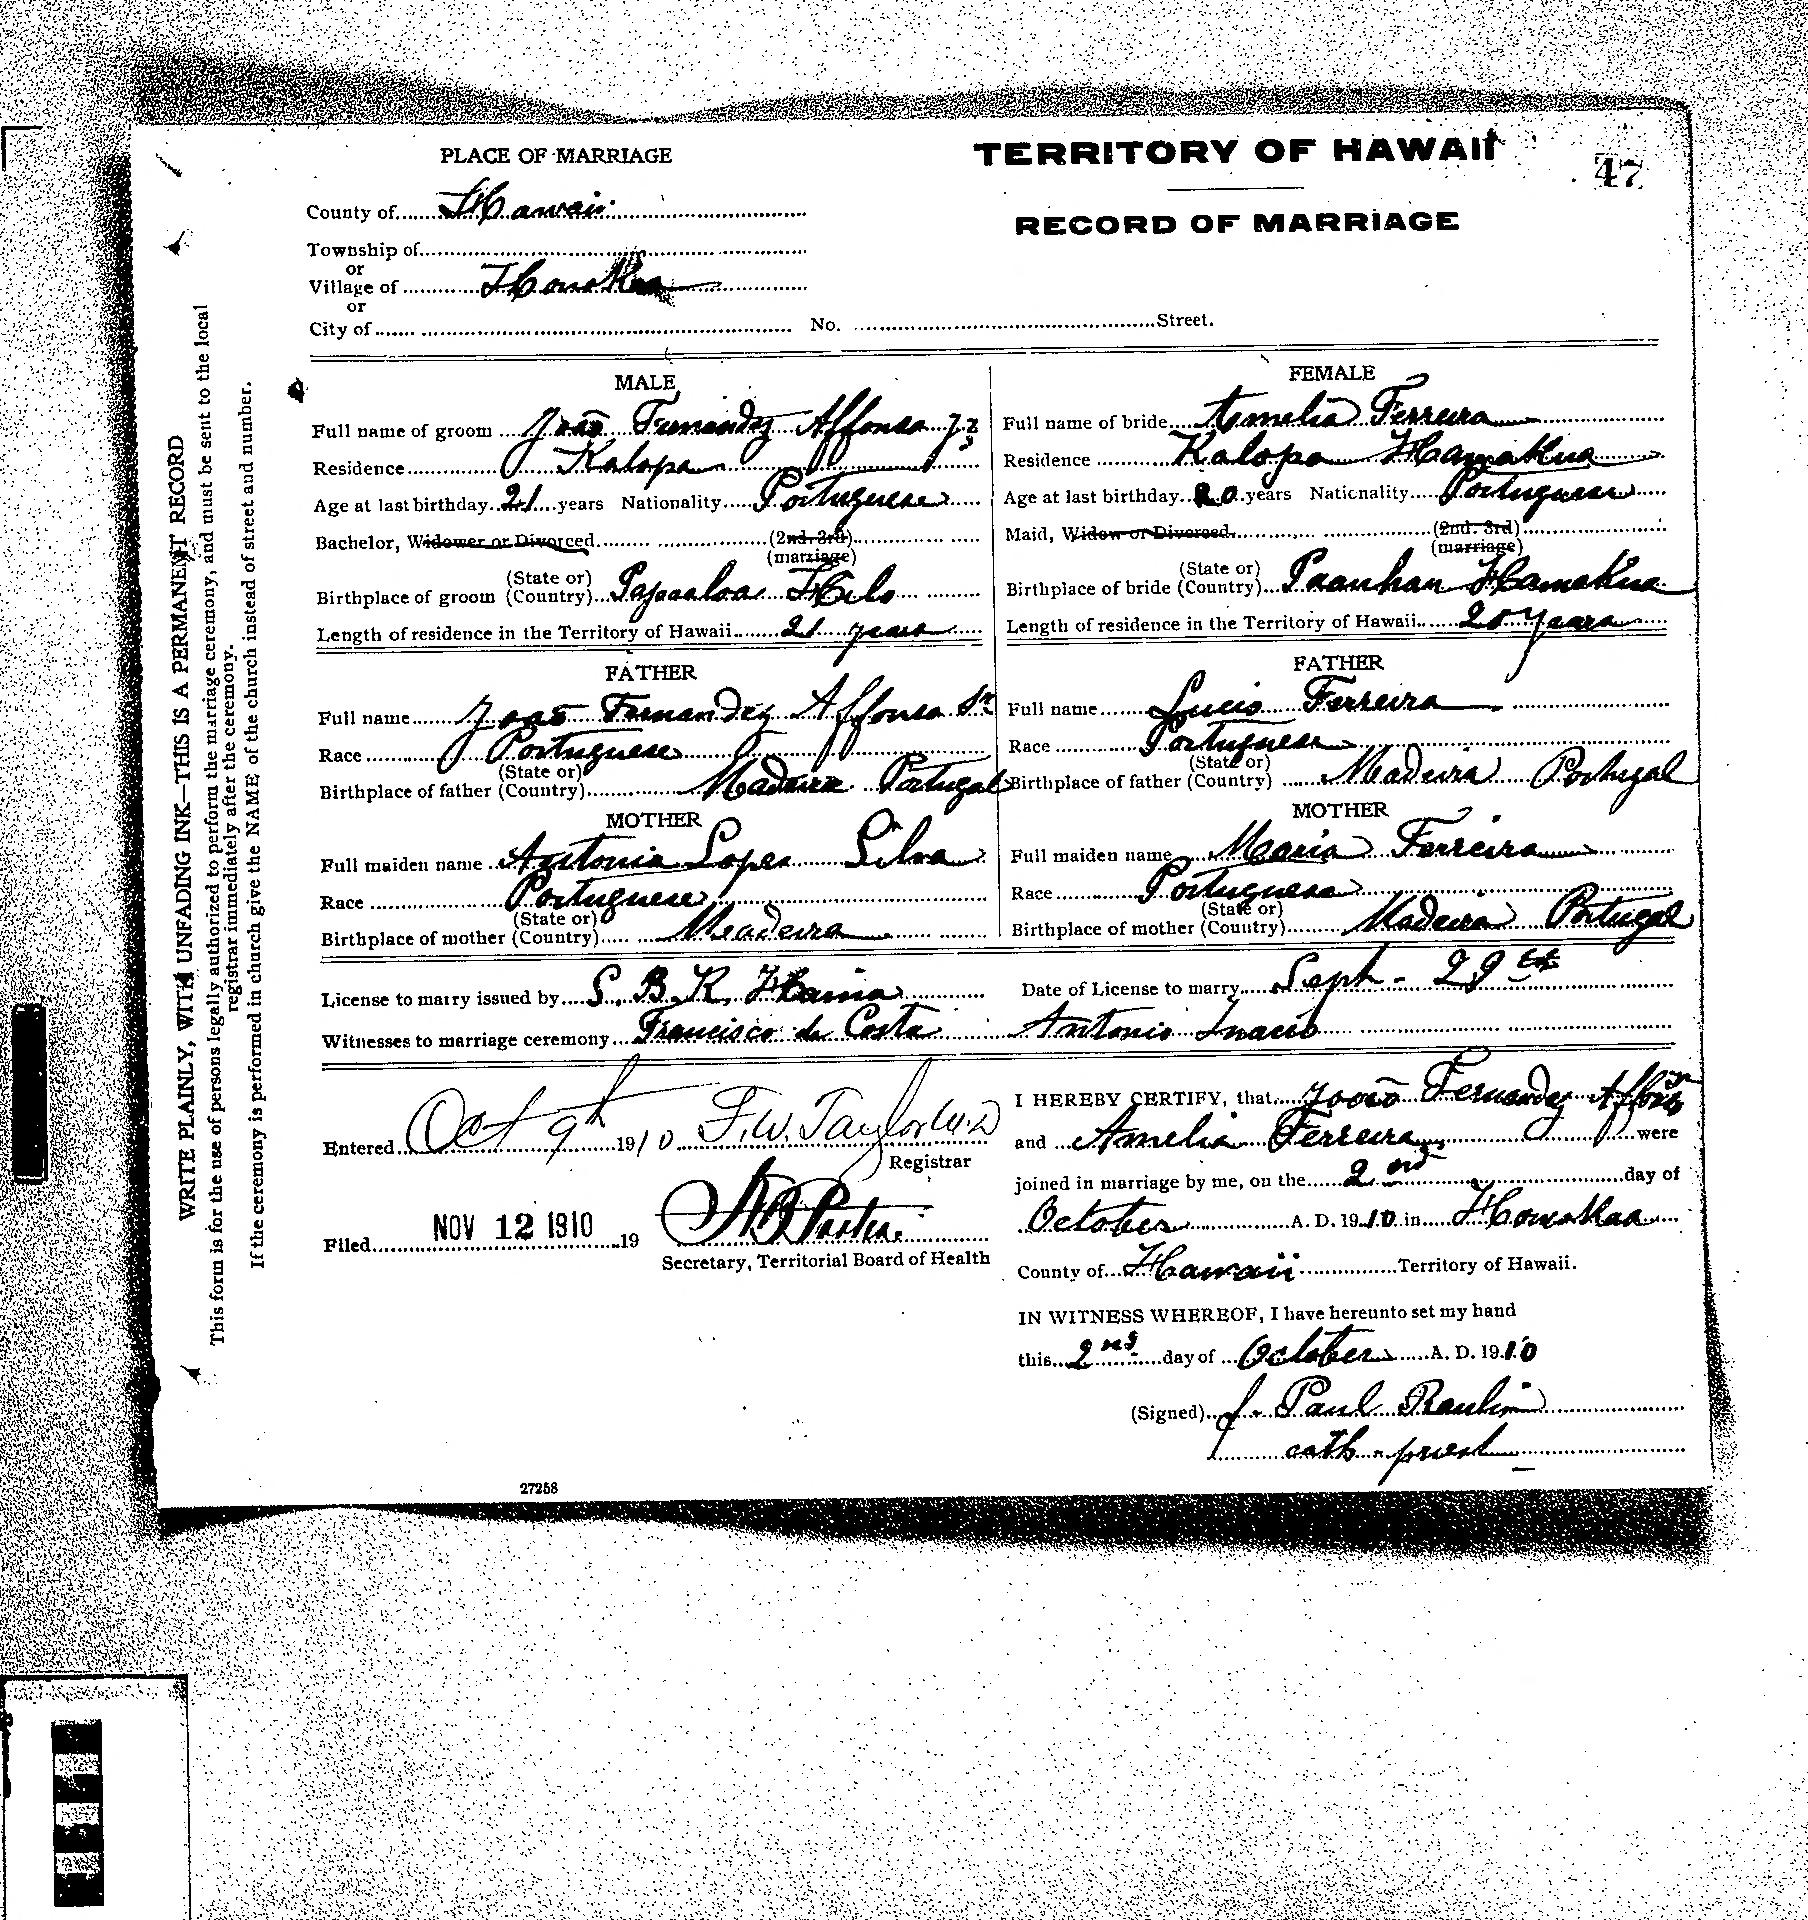 PLACE OF MARRIAGE
TERRITORY OF HAWAII
47
County of Hawaii
RECORD OF MARRIAGE
Township of
or
Village of Honokaa
or
City of No. Street.
WRITE PLAINLY, WITH UNFADING INK—THIS IS A PERMANENT RECORD
This form is for the use of persons legally authorized to perform the marriage ceremony, and must be sent to the local
registrar immediately after the ceremony.
If the ceremony is performed in church give the NAME of the church instead of street and number.
MALE
Full name of groom João Fernandez Affonso Jr
Residence Kalopa
Age at last birthday 21 years Nationality Portuguese
Bachelor, Widower or Divorced (2nd. 3rd)
(marriage)
(State or)
Birthplace of groom (Country) Papaaloa Hilo
Length of residence in the Territory of Hawaii 21 years
FATHER
Full name João Fernandez Affonso Sr
Race Portuguese
(State or)
Birthplace of father (Country) Madeira Portugal
MOTHER
Full maiden name Antonia Lopes Silva
Race Portuguese
(State or)
Birthplace of mother (Country) Madeira
FEMALE
Full name of bride Amelia Ferreira
Residence Kalopa Hamakua
Age at last birthday 20 years Nationality Portuguese
Maid, Widow or Divorced (2nd. 3rd)
(marriage)
(State or)
Birthplace of bride (Country) Paauhau Hamakua
Length of residence in the Territory of Hawaii 20 years
FATHER
Full name Lucio Ferreira
Race Portuguese
(State or)
Birthplace of father (Country) Madeira Portugal
MOTHER
Full maiden name Maria Ferreira
Race Portuguese
(State or)
Birthplace of mother (Country) Madeira Portugal
License to marry issued by S. B. K. Haina Date of License to marry Seph - 29th
Witnesses to marriage ceremony Francisco da Costa Antonio Inacio
Entered Oct 9th 1910 F.W. Taylor M.D
Registrar
Filed NOV 12 1910 19
Secretary, Territorial Board of Health
I HEREBY CERTIFY, that João Fernandez Affonso Jr
and Amelia Ferreira were
joined in marriage by me, on the 2nd day of
October A. D. 1910 in Honokaa
County of Hawaii Territory of Hawaii.
IN WITNESS WHEREOF, I have hereunto set my hand
this 2nd day of October A. D. 1910
(Signed) f. Paul Raulin
cath. priest
27258